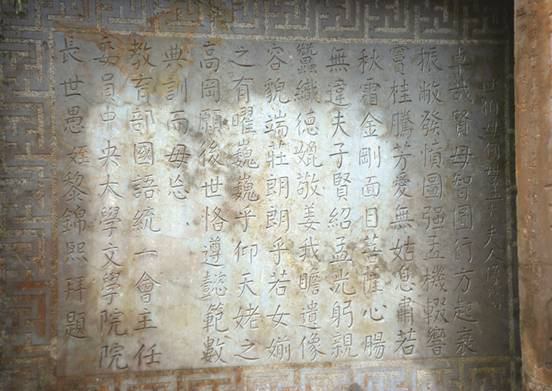 世伯母夫人
卓哉賢母智圓行方起衰
振敝發憤圖強孟機輟響
竇桂騰芳愛無姑息肅若
秋霜金剛面目菩薩心腸
無違夫子賢紹孟光躬親
蠶織德媲敬姜我瞻遺像
容貌端莊朗朗乎若女媊
之有曜巍巍乎仰天姥之
高岡願後世恪遵懿範數
典訓而毋忘
教育部國語統一會主任
委員中央大學文學院院
長世愚姪黎錦熙拜題